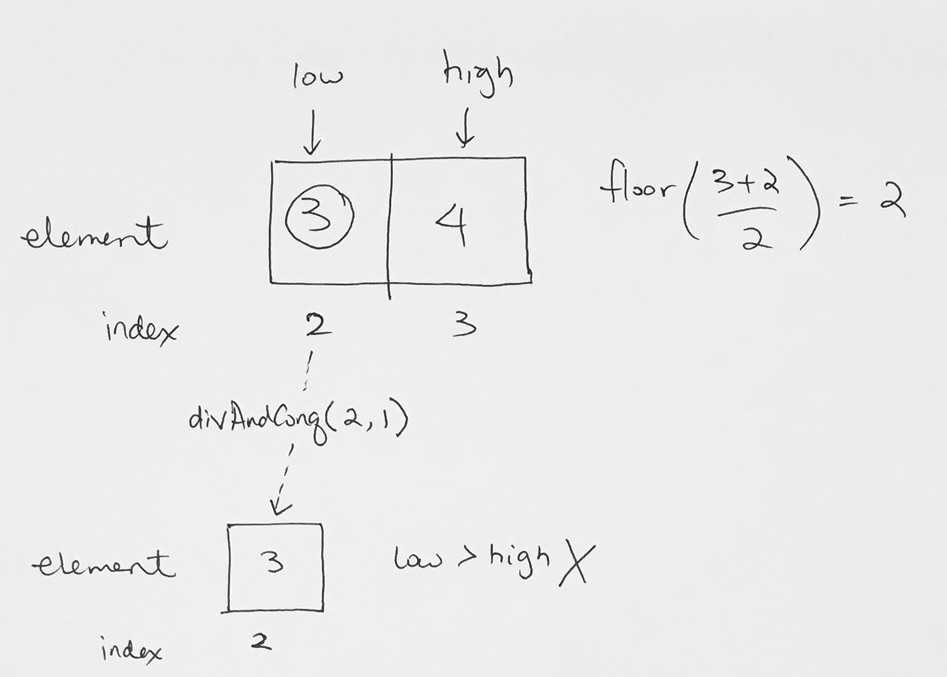 low high
element 3 4 floor(3+2/2) = 2
index 2 3
divAndConq(2,1)
element 3 low > high X
index 2